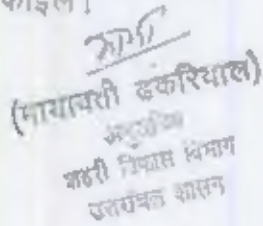 फाइल।
(मायावती ढकरियाल)
अनुसचिव
शहरी विकास विभाग
उत्तरांचल शासन